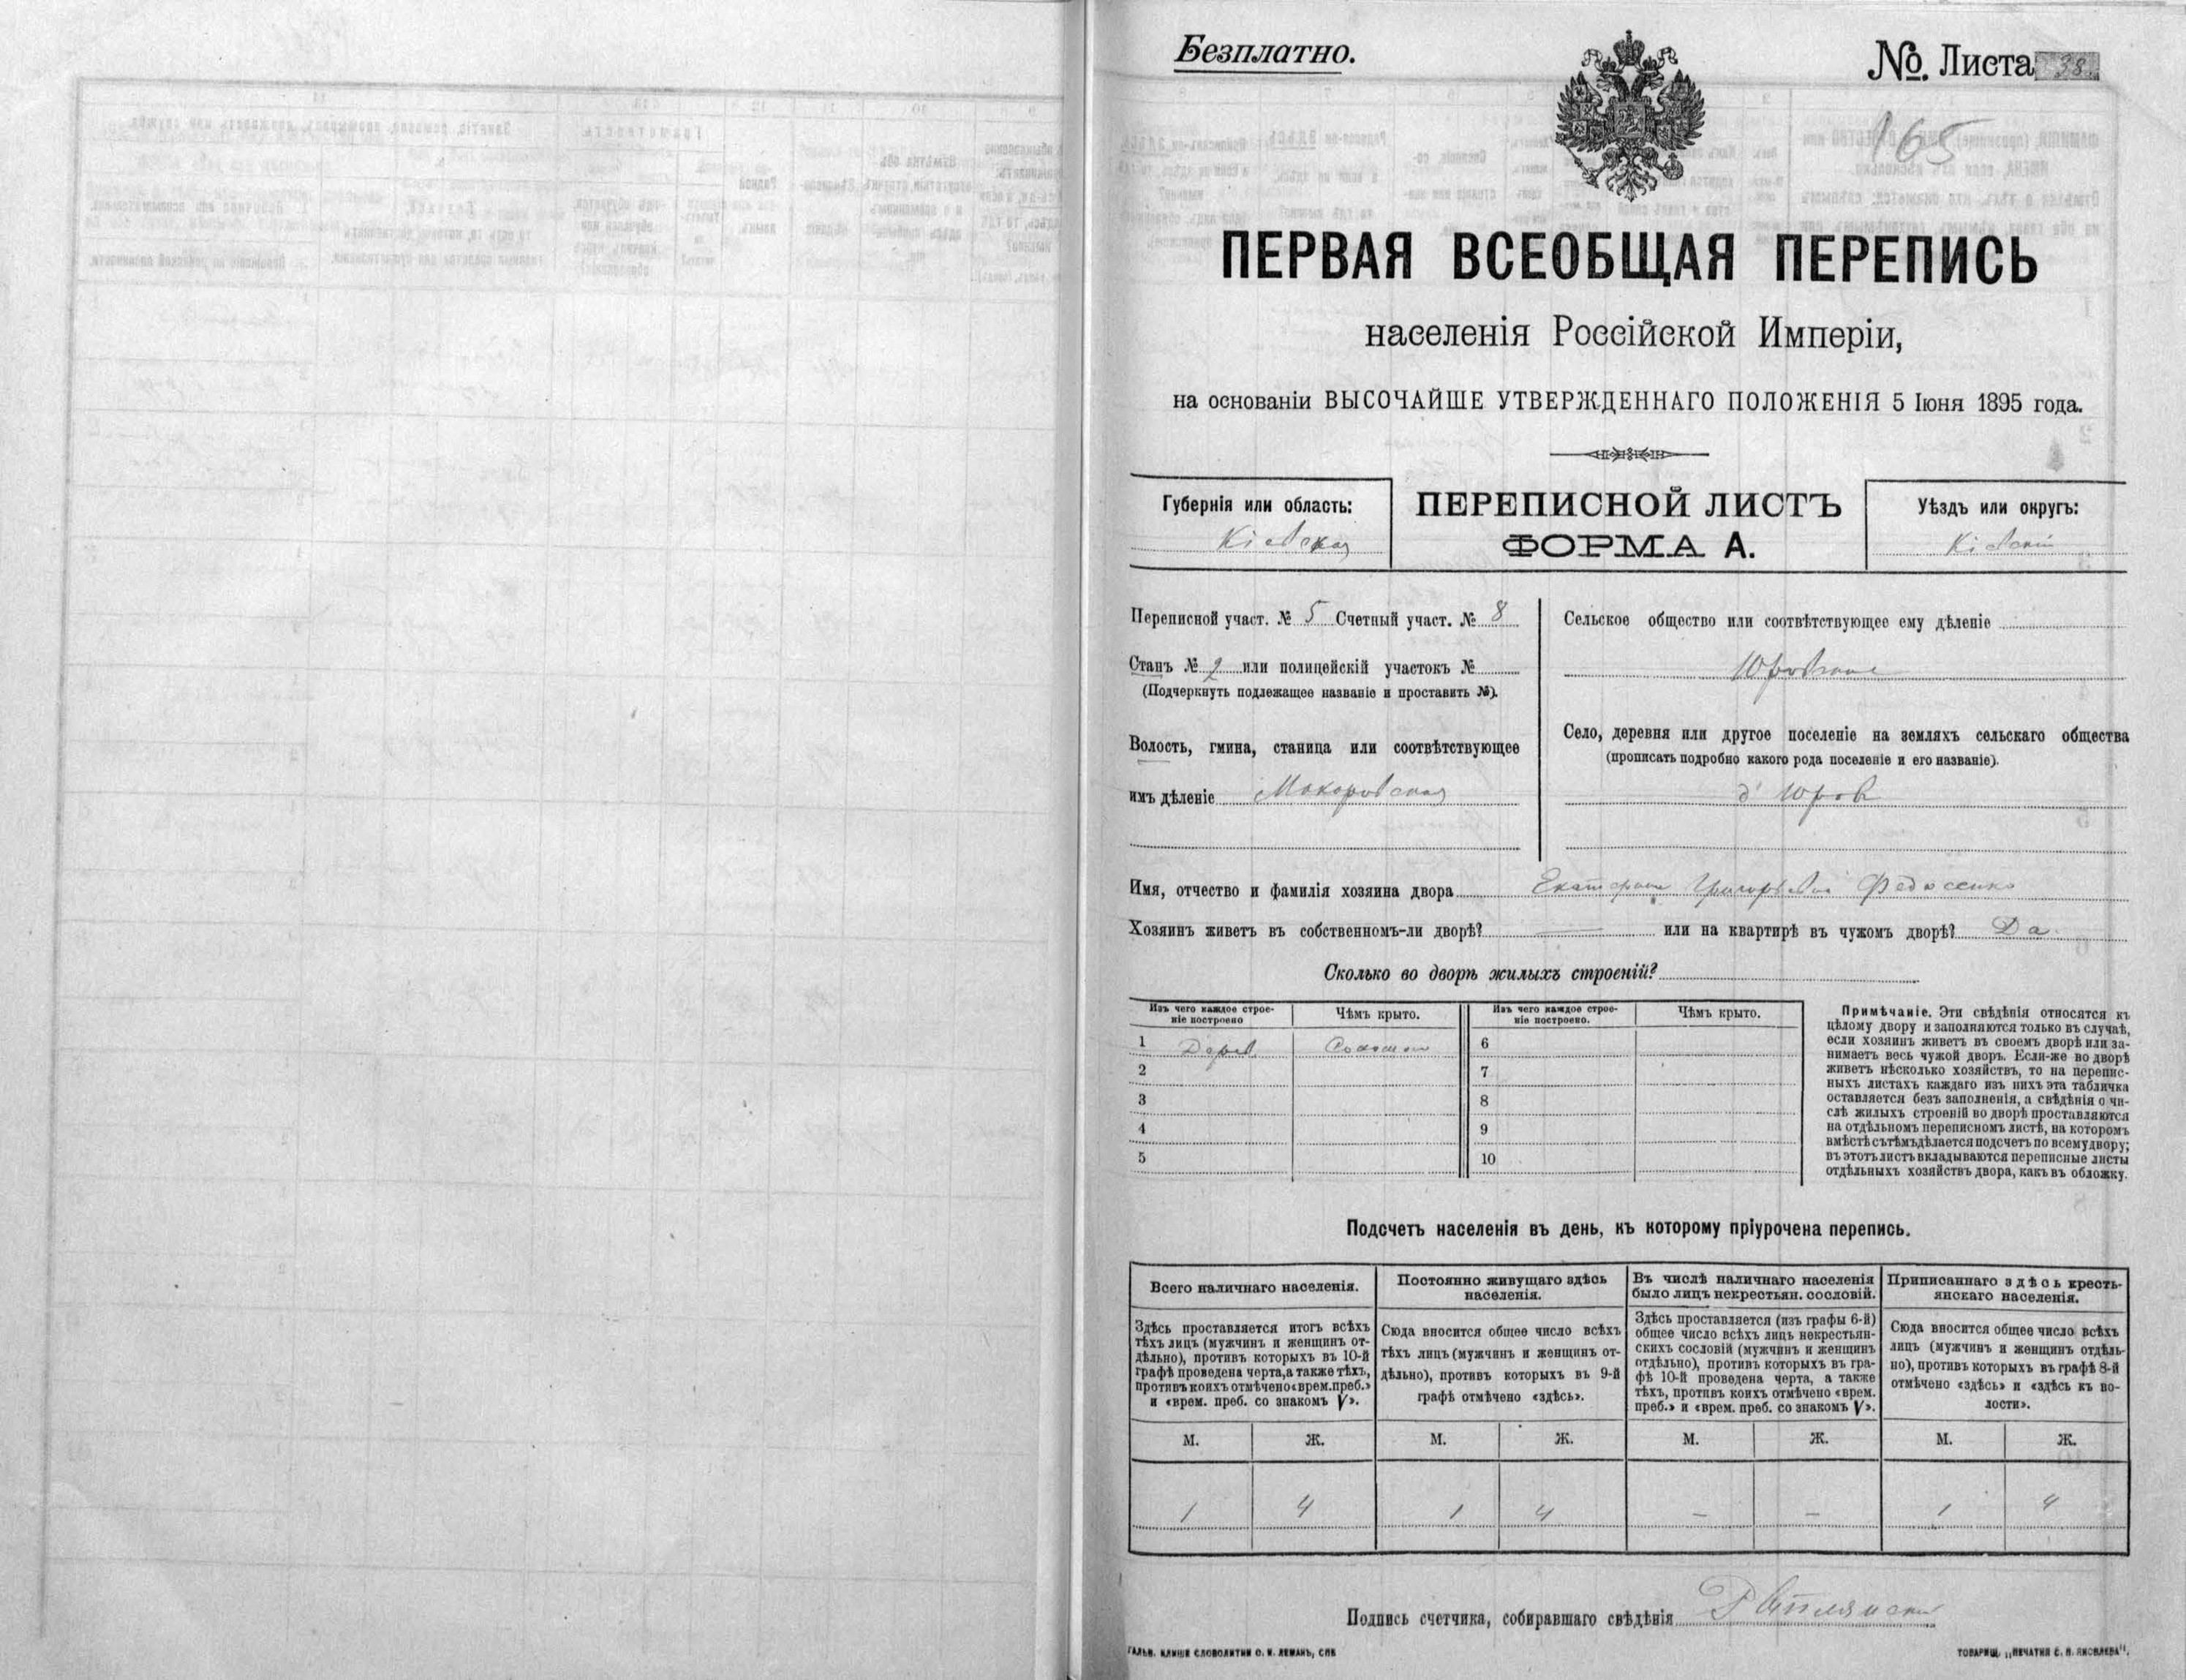 Безплатно.
№ Листа 38.
165
ПЕРВАЯ ВСЕОБЩАЯ ПЕРЕПИСЬ
населенія Россійской Имперіи,
на основаніи ВЫСОЧАЙШЕ УТВЕРЖДЕННАГО ПОЛОЖЕНІЯ 5 Іюня 1895 года.
Губернія или область:
Кіевская
ПЕРЕПИСНОЙ ЛИСТЪ
ФОРМА А.
Уѣздъ или округъ:
Кіевскій
Переписной участ. № 5 Счетный участ. № 8
Станъ № 2 или полицейскій участокъ №
(Подчеркнуть подлежащее названіе и проставить №).
Волость, гмина, станица или соотвѣтствующее
имъ дѣленіе Макаровская
Сельское общество или соотвѣтствующее ему дѣленіе
Юровское
Село, деревня или другое поселеніе на земляхъ сельскаго общества
(прописать подробно какого рода поселеніе и его названіе).
д. Юров
Имя, отчество и фамилія хозяина двора Екатерина Григорьевна Федосенко
Хозяинъ живетъ въ собственномъ-ли дворѣ? — или на квартирѣ въ чужомъ дворѣ? Да
Сколько во дворѣ жилыхъ строеній?
Изъ чего каждое строе-
ніе построено
Чѣмъ крыто.
Изъ чего каждое строе-
ніе построено.
Чѣмъ крыто.
1 Дерев. Соломою 6
2 7
3 8
4 9
5 10
Примѣчаніе. Эти свѣдѣнія относятся къ
цѣлому двору и заполняются только въ случаѣ,
если хозяинъ живетъ въ своемъ дворѣ или за-
нимаетъ весь чужой дворъ. Если-же во дворѣ
живетъ нѣсколько хозяйствъ, то на перепис-
ныхъ листахъ каждаго изъ нихъ эта табличка
оставляется безъ заполненія, а свѣдѣнія о чи-
слѣ жилыхъ строеній во дворѣ проставляются
на отдѣльномъ переписномъ листѣ, на которомъ
вмѣстѣ съ тѣмъ дѣлается подсчетъ по всему двору;
въ этотъ листъ вкладываются переписные листы
отдѣльныхъ хозяйствъ двора, какъ въ обложку.
Подсчетъ населенія въ день, къ которому пріурочена перепись.
Всего наличнаго населенія.
Здѣсь проставляется итогъ всѣхъ
тѣхъ лицъ (мужчинъ и женщинъ от-
дѣльно), противъ которыхъ въ 10-й
графѣ проведена черта, а также тѣхъ,
противъ коихъ отмѣчено «врем. преб.»
и «врем. преб. со знакомъ V».
Постоянно живущаго здѣсь
населенія.
Сюда вносится общее число всѣхъ
тѣхъ лицъ (мужчинъ и женщинъ от-
дѣльно), противъ которыхъ въ 9-й
графѣ отмѣчено «здѣсь».
Въ числѣ наличнаго населенія
было лицъ некрестьян. сословій.
Здѣсь проставляется (изъ графы 6-й)
общее число всѣхъ лицъ некрестьян-
скихъ сословій (мужчинъ и женщинъ
отдѣльно), противъ которыхъ въ гра-
фѣ 10-й проведена черта, а также
тѣхъ, противъ коихъ отмѣчено «врем.
преб.» и «врем. преб. со знакомъ V».
Приписаннаго здѣсь кресть-
янскаго населенія.
Сюда вносится общее число всѣхъ
лицъ (мужчинъ и женщинъ отдѣль-
но), противъ которыхъ въ графѣ 8-й
отмѣчено «здѣсь» и «здѣсь къ во-
лости».
М. Ж. М. Ж. М. Ж. М. Ж.
1 4 1 4 — — 1 4
Подпись счетчика, собиравшаго свѣдѣнія
ГАЛЬВ. КЛИШЕ СЛОВОЛИТНИ О. И. ЛЕМАНЪ, СПБ
ТОВАРИЩ. „ПЕЧАТНЯ С. П. ЯКОВЛЕВА".